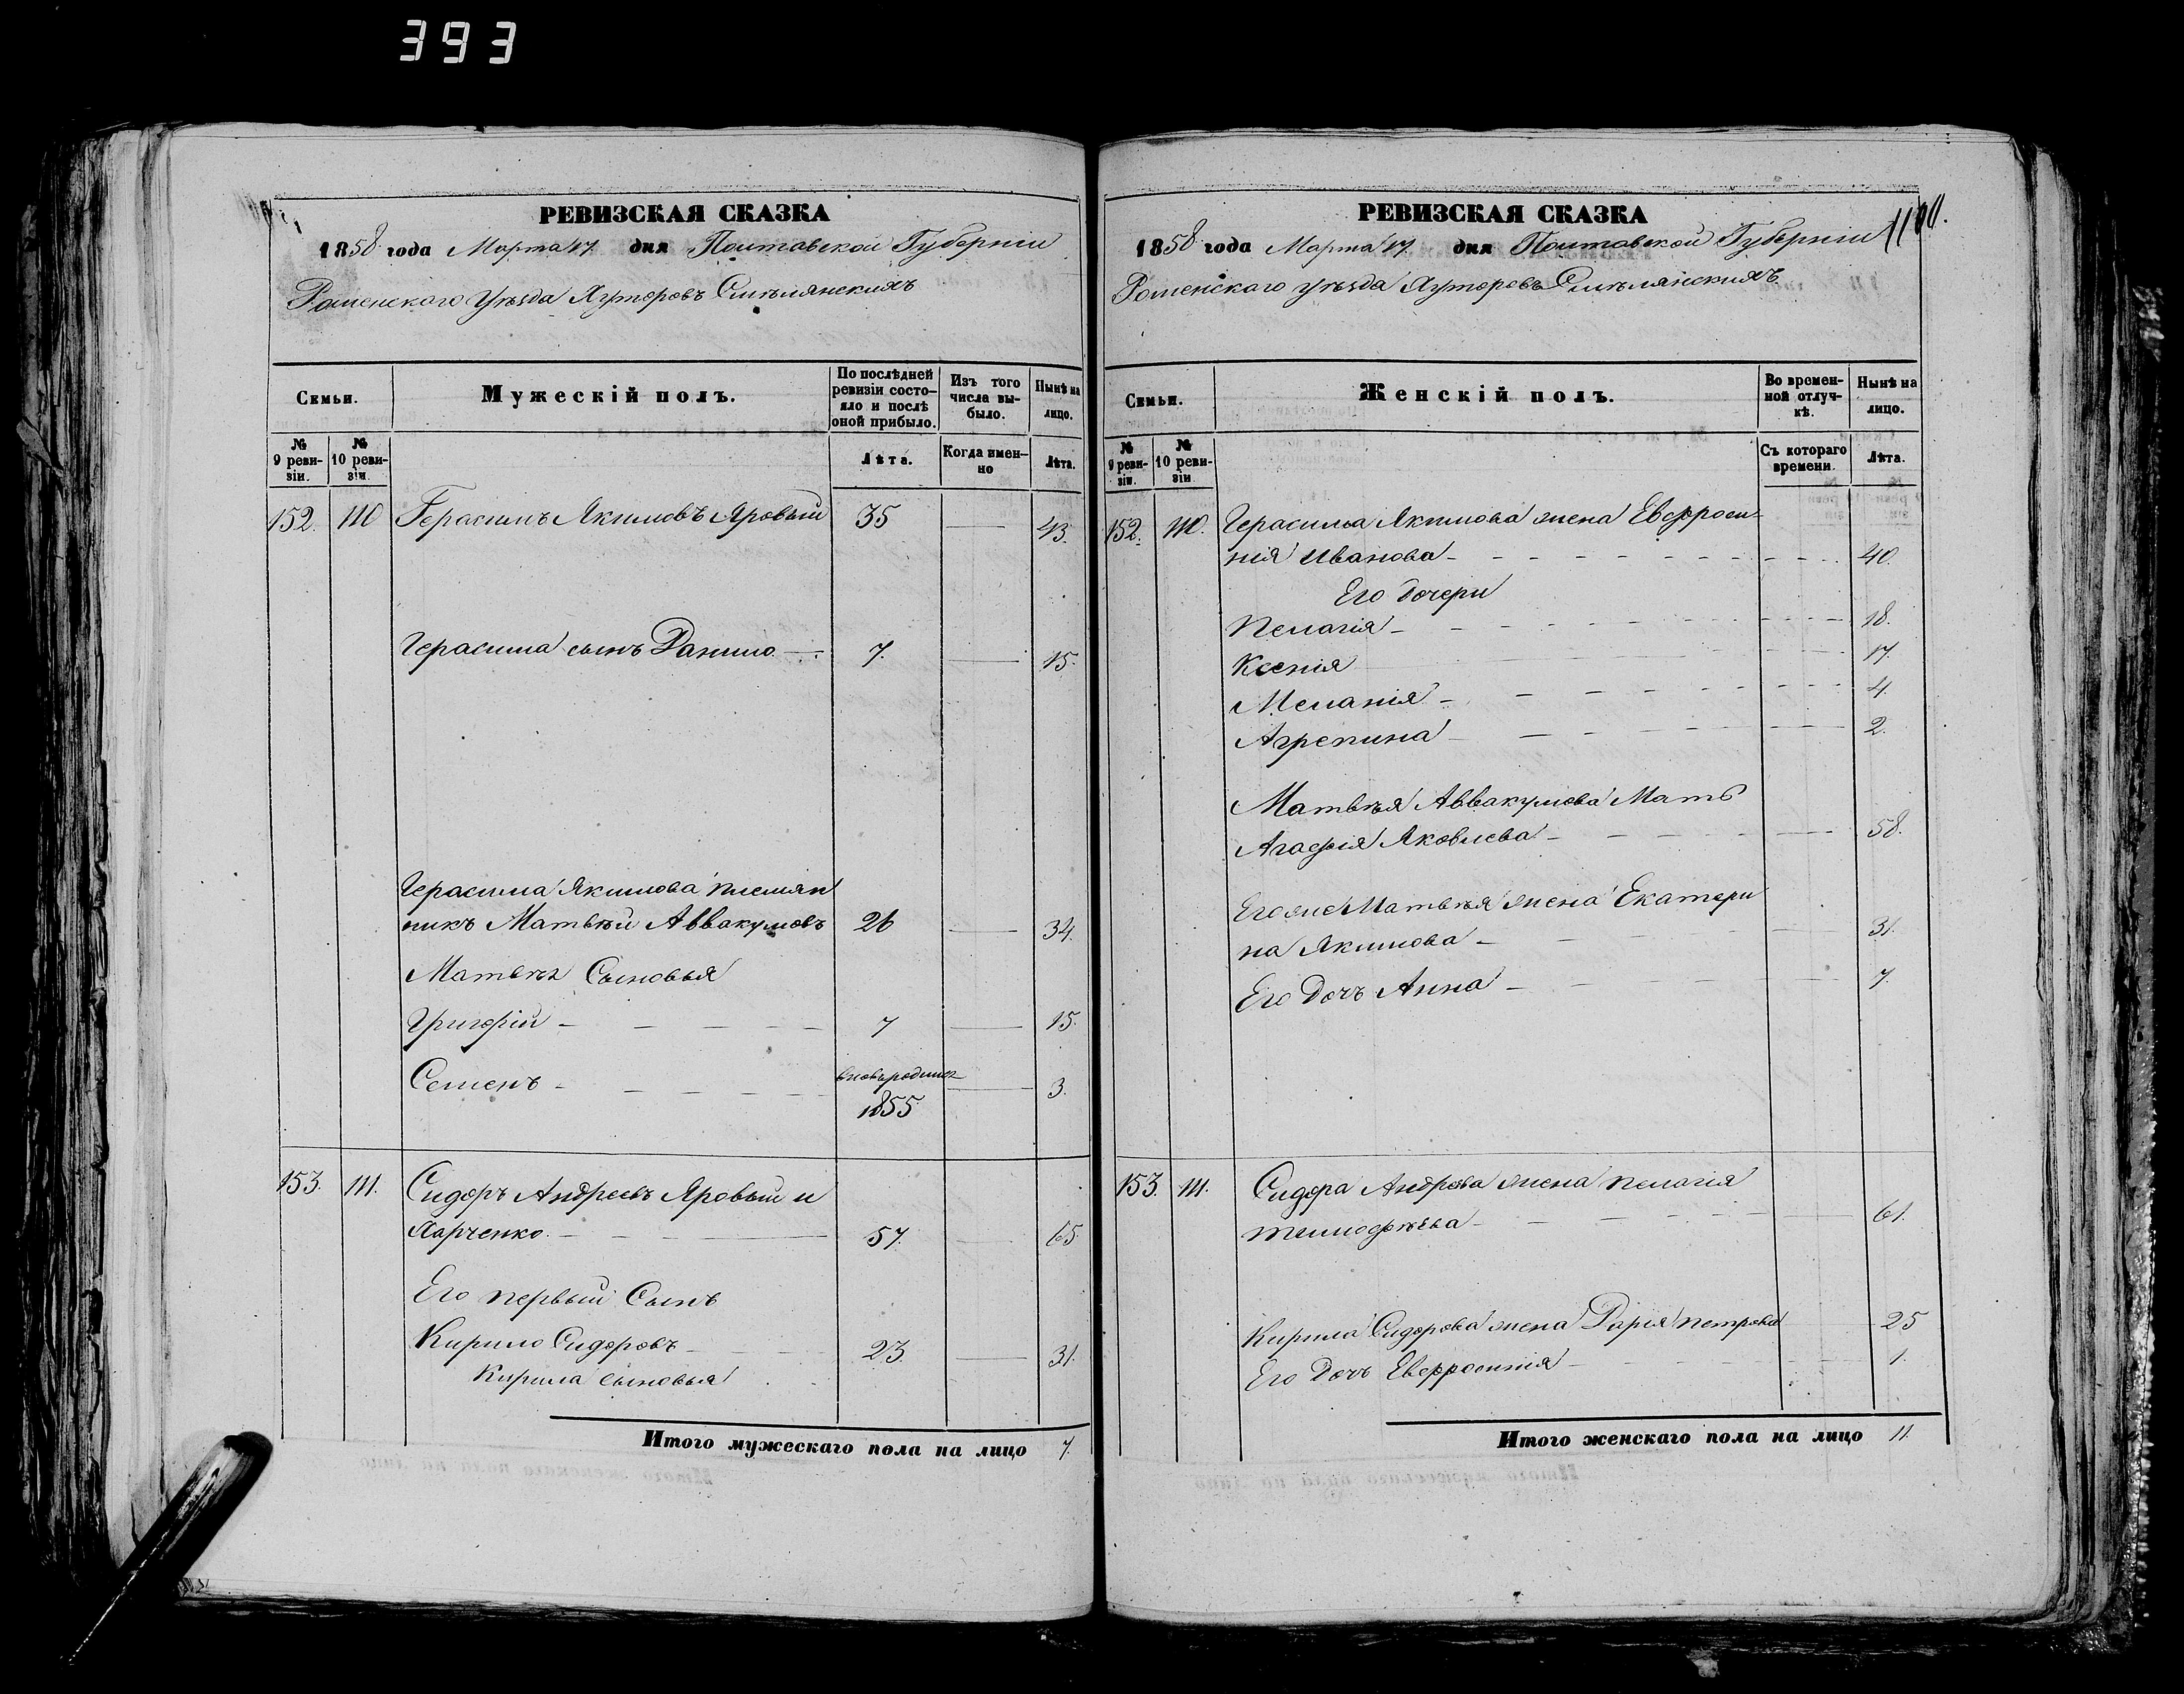 393
РЕВИЗСКАЯ СКАЗКА
1858 года Марта 17 дня Полтавской Губерніи
Роменскаго Уѣзда Хуторовъ Смѣлянскихъ
Семьи.
Мужескій полъ.
По послѣдней ревизіи состояло и послѣ оной прибыло.
Изъ того числа выбыло.
Нынѣ на лицо.
№ 9 ревизіи.
№ 10 ревизіи.
Лѣта.
Когда именно
Лѣта.
152. 110 Герасимъ Якимовъ Яровый 35 43.
Герасима сынъ Данило 7. 15.
Герасима Якимова племян
никъ Матвѣй Аввакумовъ 26 34.
Матвѣя Сыновья
Григорій 7 15.
Семенъ вновьродился 3.
1855
153. 111. Сидоръ Андреевъ Яровый и
Харченко. 57. 65
Его первый Сынъ
Кирило Сидоровъ 23. 31.
Кирила сыновья
Итого мужескаго пола на лицо 7.
РЕВИЗСКАЯ СКАЗКА
1858 года Марта 17 дня Полтавской Губерніи
Роменскаго уѣзда Хуторовъ Смѣлянскихъ
Семьи.
Женскій полъ.
Во временной отлучкѣ.
Нынѣ на лицо.
№ 9 ревизіи.
№ 10 ревизіи
Съ котораго времени.
Лѣта.
152. 110. Герасима Якимова жена Евфроси-
нія Иванова 40.
Его дочери
Пелагія 18.
Ксенія 17.
Меланія 4.
Агрепина 2.
Матвѣя Аввакумова Мать
Агафія Яковлева 58.
Его же Матвѣя жена Екатери
на Якимова 31.
Его Дочь Анна 7.
153. 111. Сидора Андрева жена Пелагія
Тимофѣева 61.
Кирила Сидорова жена Дарія Петрова 25
Его Дочь Евфросинія 1.
Итого женскаго пола на лицо 11.